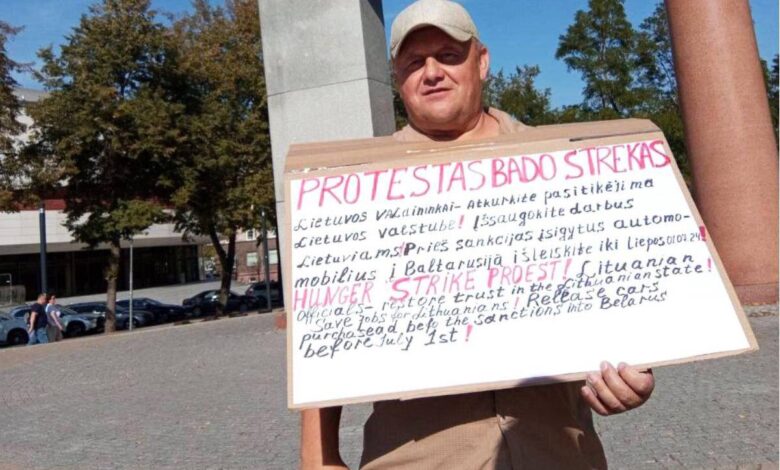 PROTESTAS BADO STREKAS
LIETUVOS VALDININKAI- ATKURKITE pasitikėjima
LIETUVOS VALSTUBE! IŠSAUGOKITE DARBUS
LIETUVIAMS! PRIEŠ SANKCIJAS ĮSIGYTUS AUTOMO-
MOBILIUS Į BALTARUSIJĄ IŠLEISKITE IKI LIEPOS 01.07.24!
HUNGER STRIKE PROEST! Lithuanian
Officials- restore trust in the Lithuanian state!
Save jobs for Lithuanians! Release cars
purchasead befo the sanctions into Belarus
before July 1st!